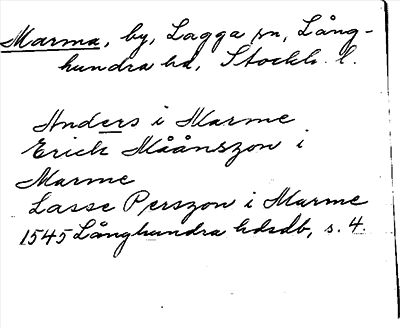 Marma, by, Lagga sn, Lång-
hundra hd, Stockh. l.
Anders i Marme
Erich Måånszon i
Marme
Lasse Perszon i Marme
1545 Långhundra hdsdb, s. 4.